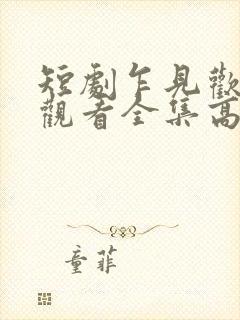 短劇乍見歡
觀看全集高
童菲